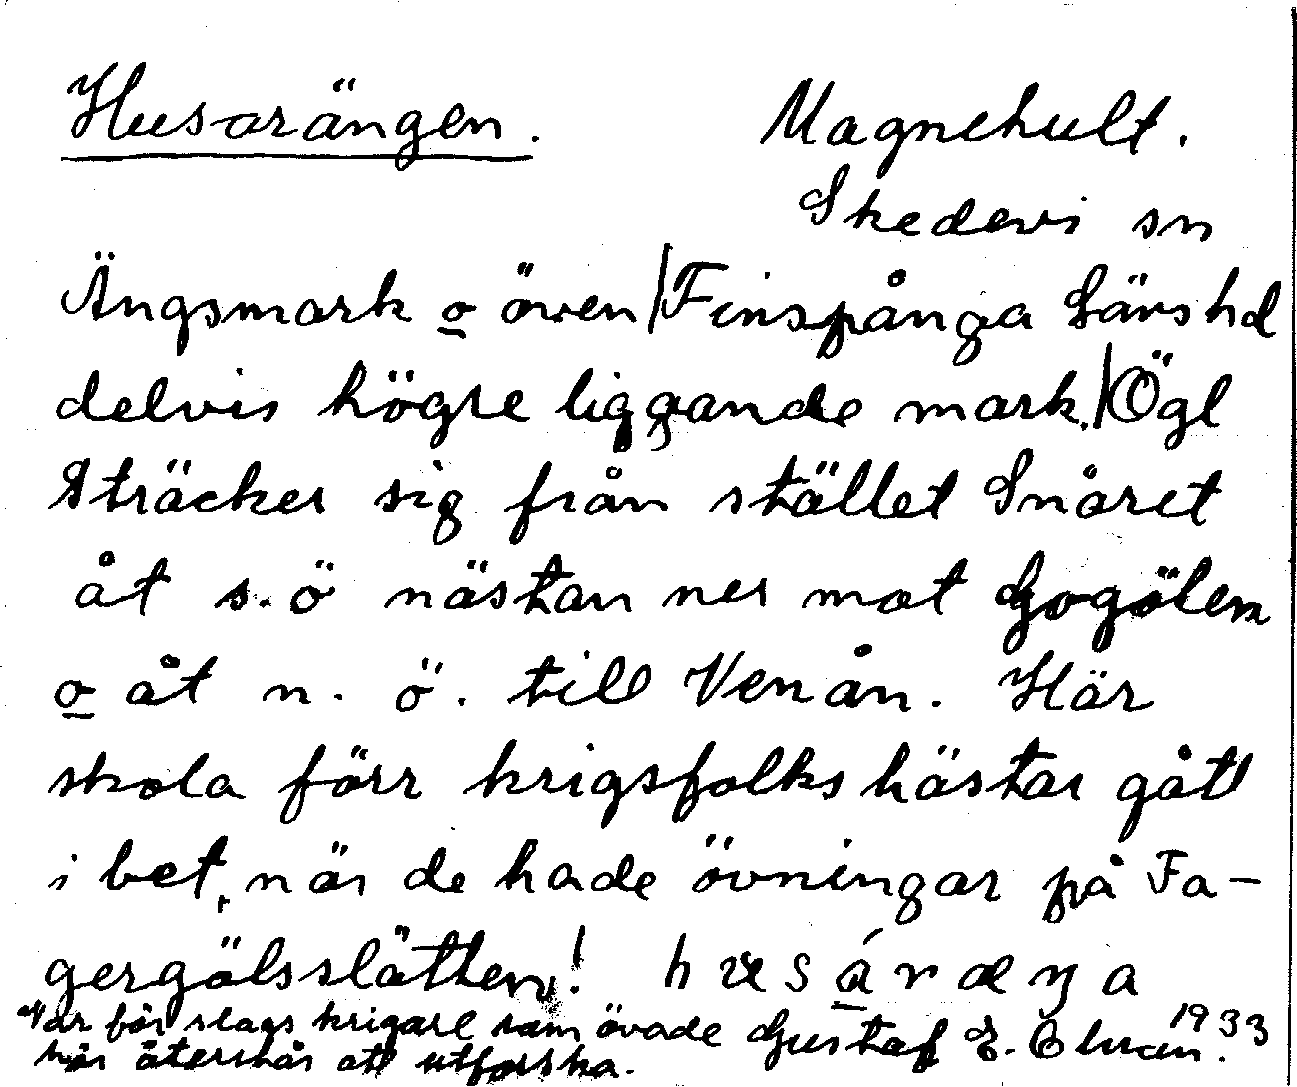 Husarängen. Magnehult.
Skedevi sn
Ängsmark o även Finspånga Lävs hd
delvis högre liggande mark. Ögl
Sträcker sig från stället Snåret
åt s.ö nästan ner mot Gogölen
o åt n.ö. till Venån. Här
skola förr krigsfolks hästar gått
i bet, när de hade övningar på Fa-
gergölsslätten! husáræŋa
Var för slags krigare som övade Gustaf E. 1933
här återstår att utforska.